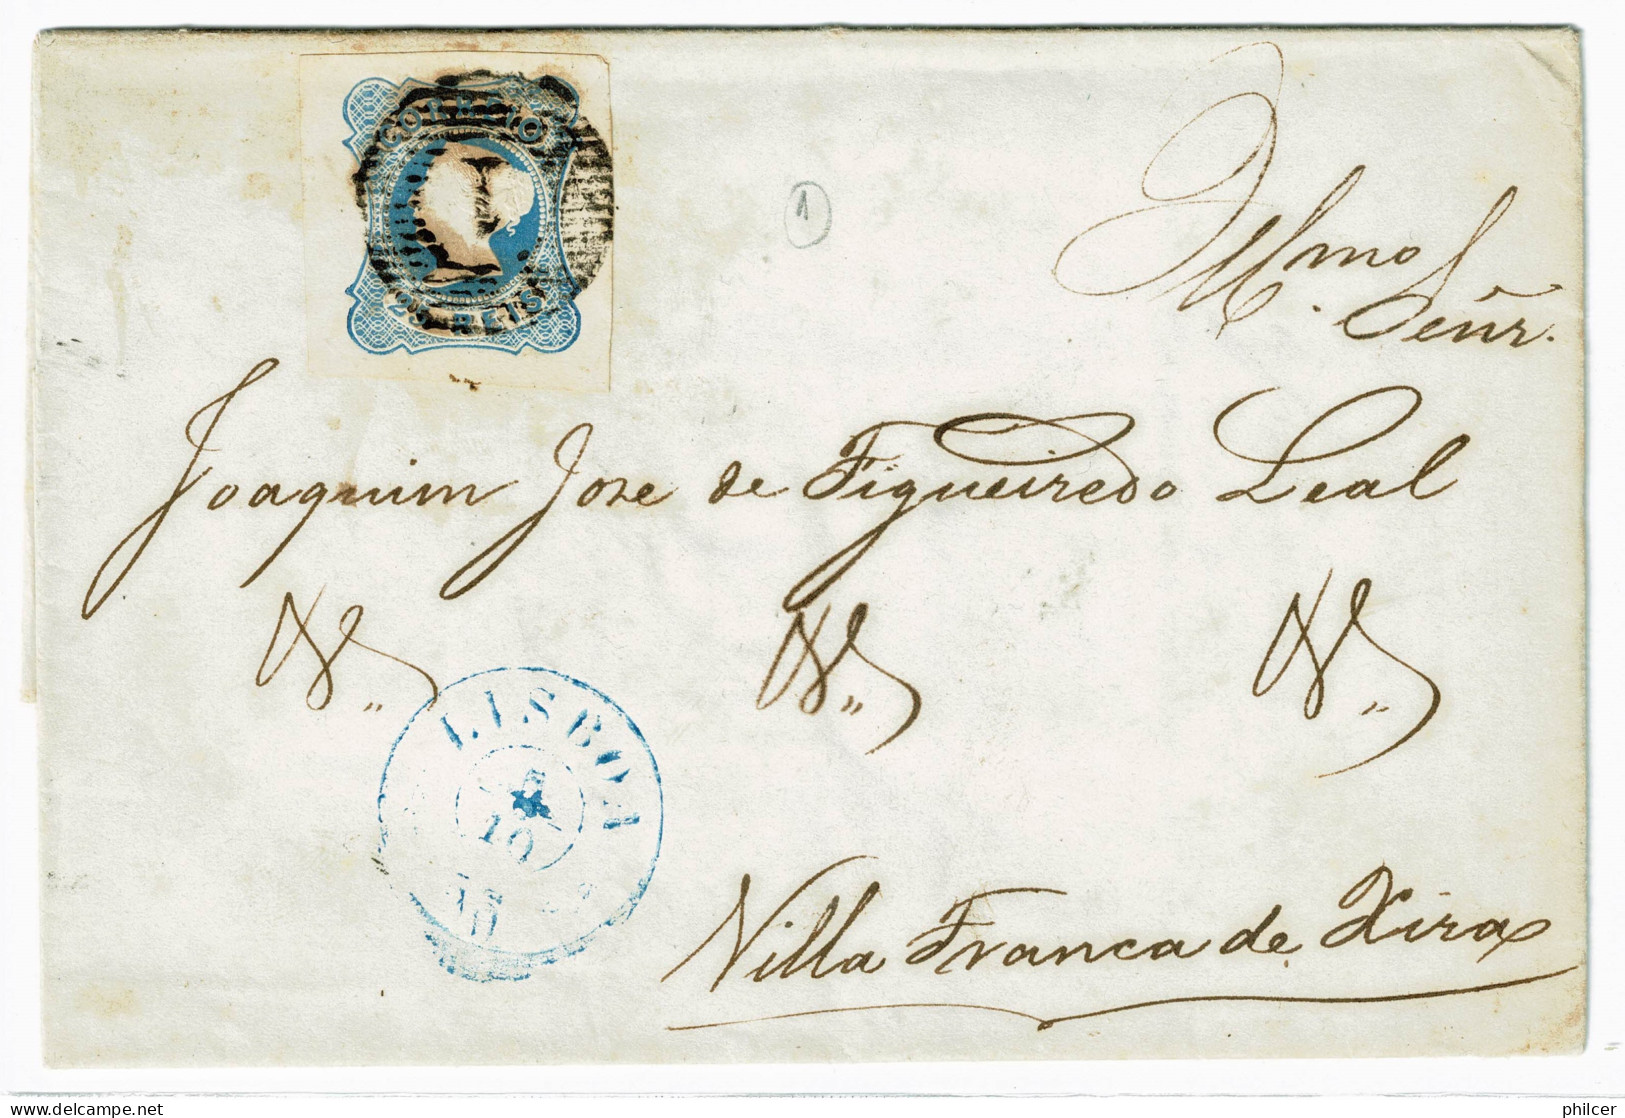 CORREIO
1
25 REIS
1
Illmo. Señr.
Joaquim Jose de Figueiredo Leal
LISBOA
10
Villa Franca de Xira
philcer